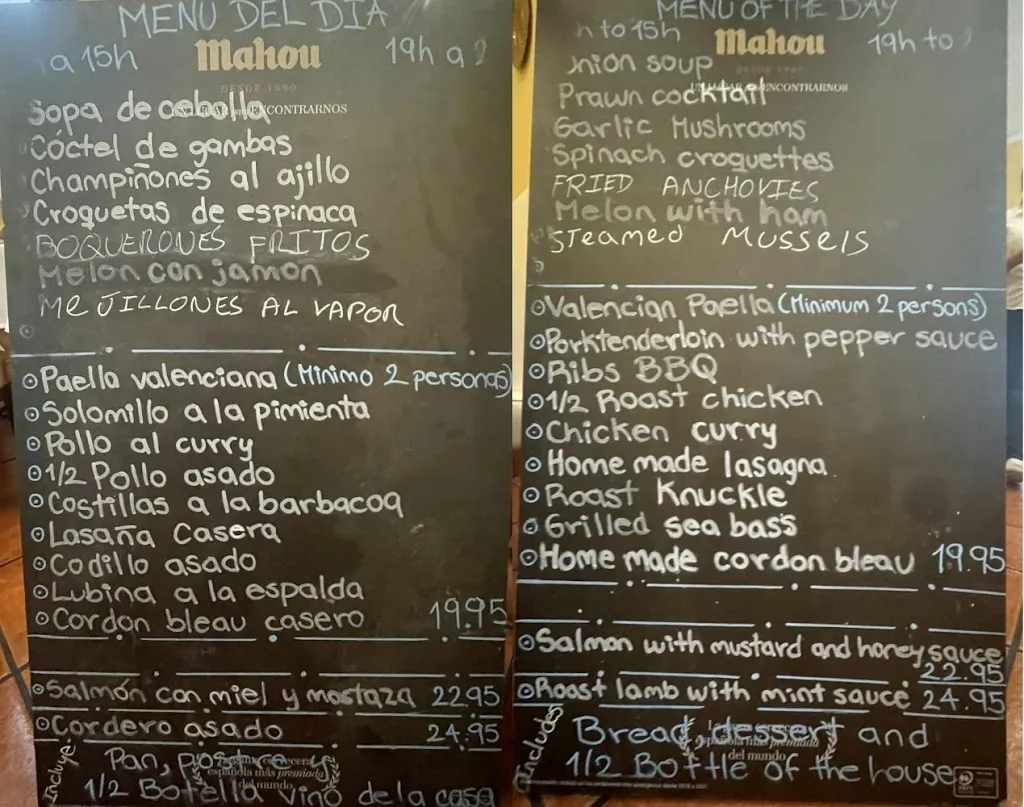 MENU DEL DIA
a 15h
Mahou
19h a 2
DESDE 1890
UN LUGAR para ENCONTRARNOS
Sopa de cebolla
Cóctel de gambas
Champiñones al ajillo
Croquetas de espinaca
BOQUERONES FRITOS
Melon con jamon
MeJILLONES AL VAPOR
Paella valenciana (Minimo 2 personas)
Solomillo a la pimienta
Pollo al curry
1/2 Pollo asado
Costillas a la barbacoa
Lasaña Casera
Codillo asado
Lubina a la espalda
Cordon bleau casero 19.95
Salmón con miel y mostaza 22.95
Cordero asado 24.95
Incluye
Pan, postre y
española más premiada
del mundo
1/2 Botella vino de la casa
MENU OF THE DAY
h to 15h
Mahou
19h to
DESDE 1890
ENCONTRARNOS
onion soup
Prawn cocktail
Garlic Mushrooms
Spinach croquettes
FRIED ANCHOVIES
Melon with ham
STeamed Mussels
Valencian Paella (Minimum 2 persons)
Porktenderloin with pepper sauce
Ribs BBQ
1/2 Roast chicken
Chicken curry
Home made lasagna
Roast Knuckle
Grilled sea bass
Home made cordon bleau 19.95
Salmon with mustard and honey sauce
22.95
Roast lamb with mint sauce 24.95
Includes
Bread, dessert and
española más premiada
del mundo
1/2 Bottle of the house